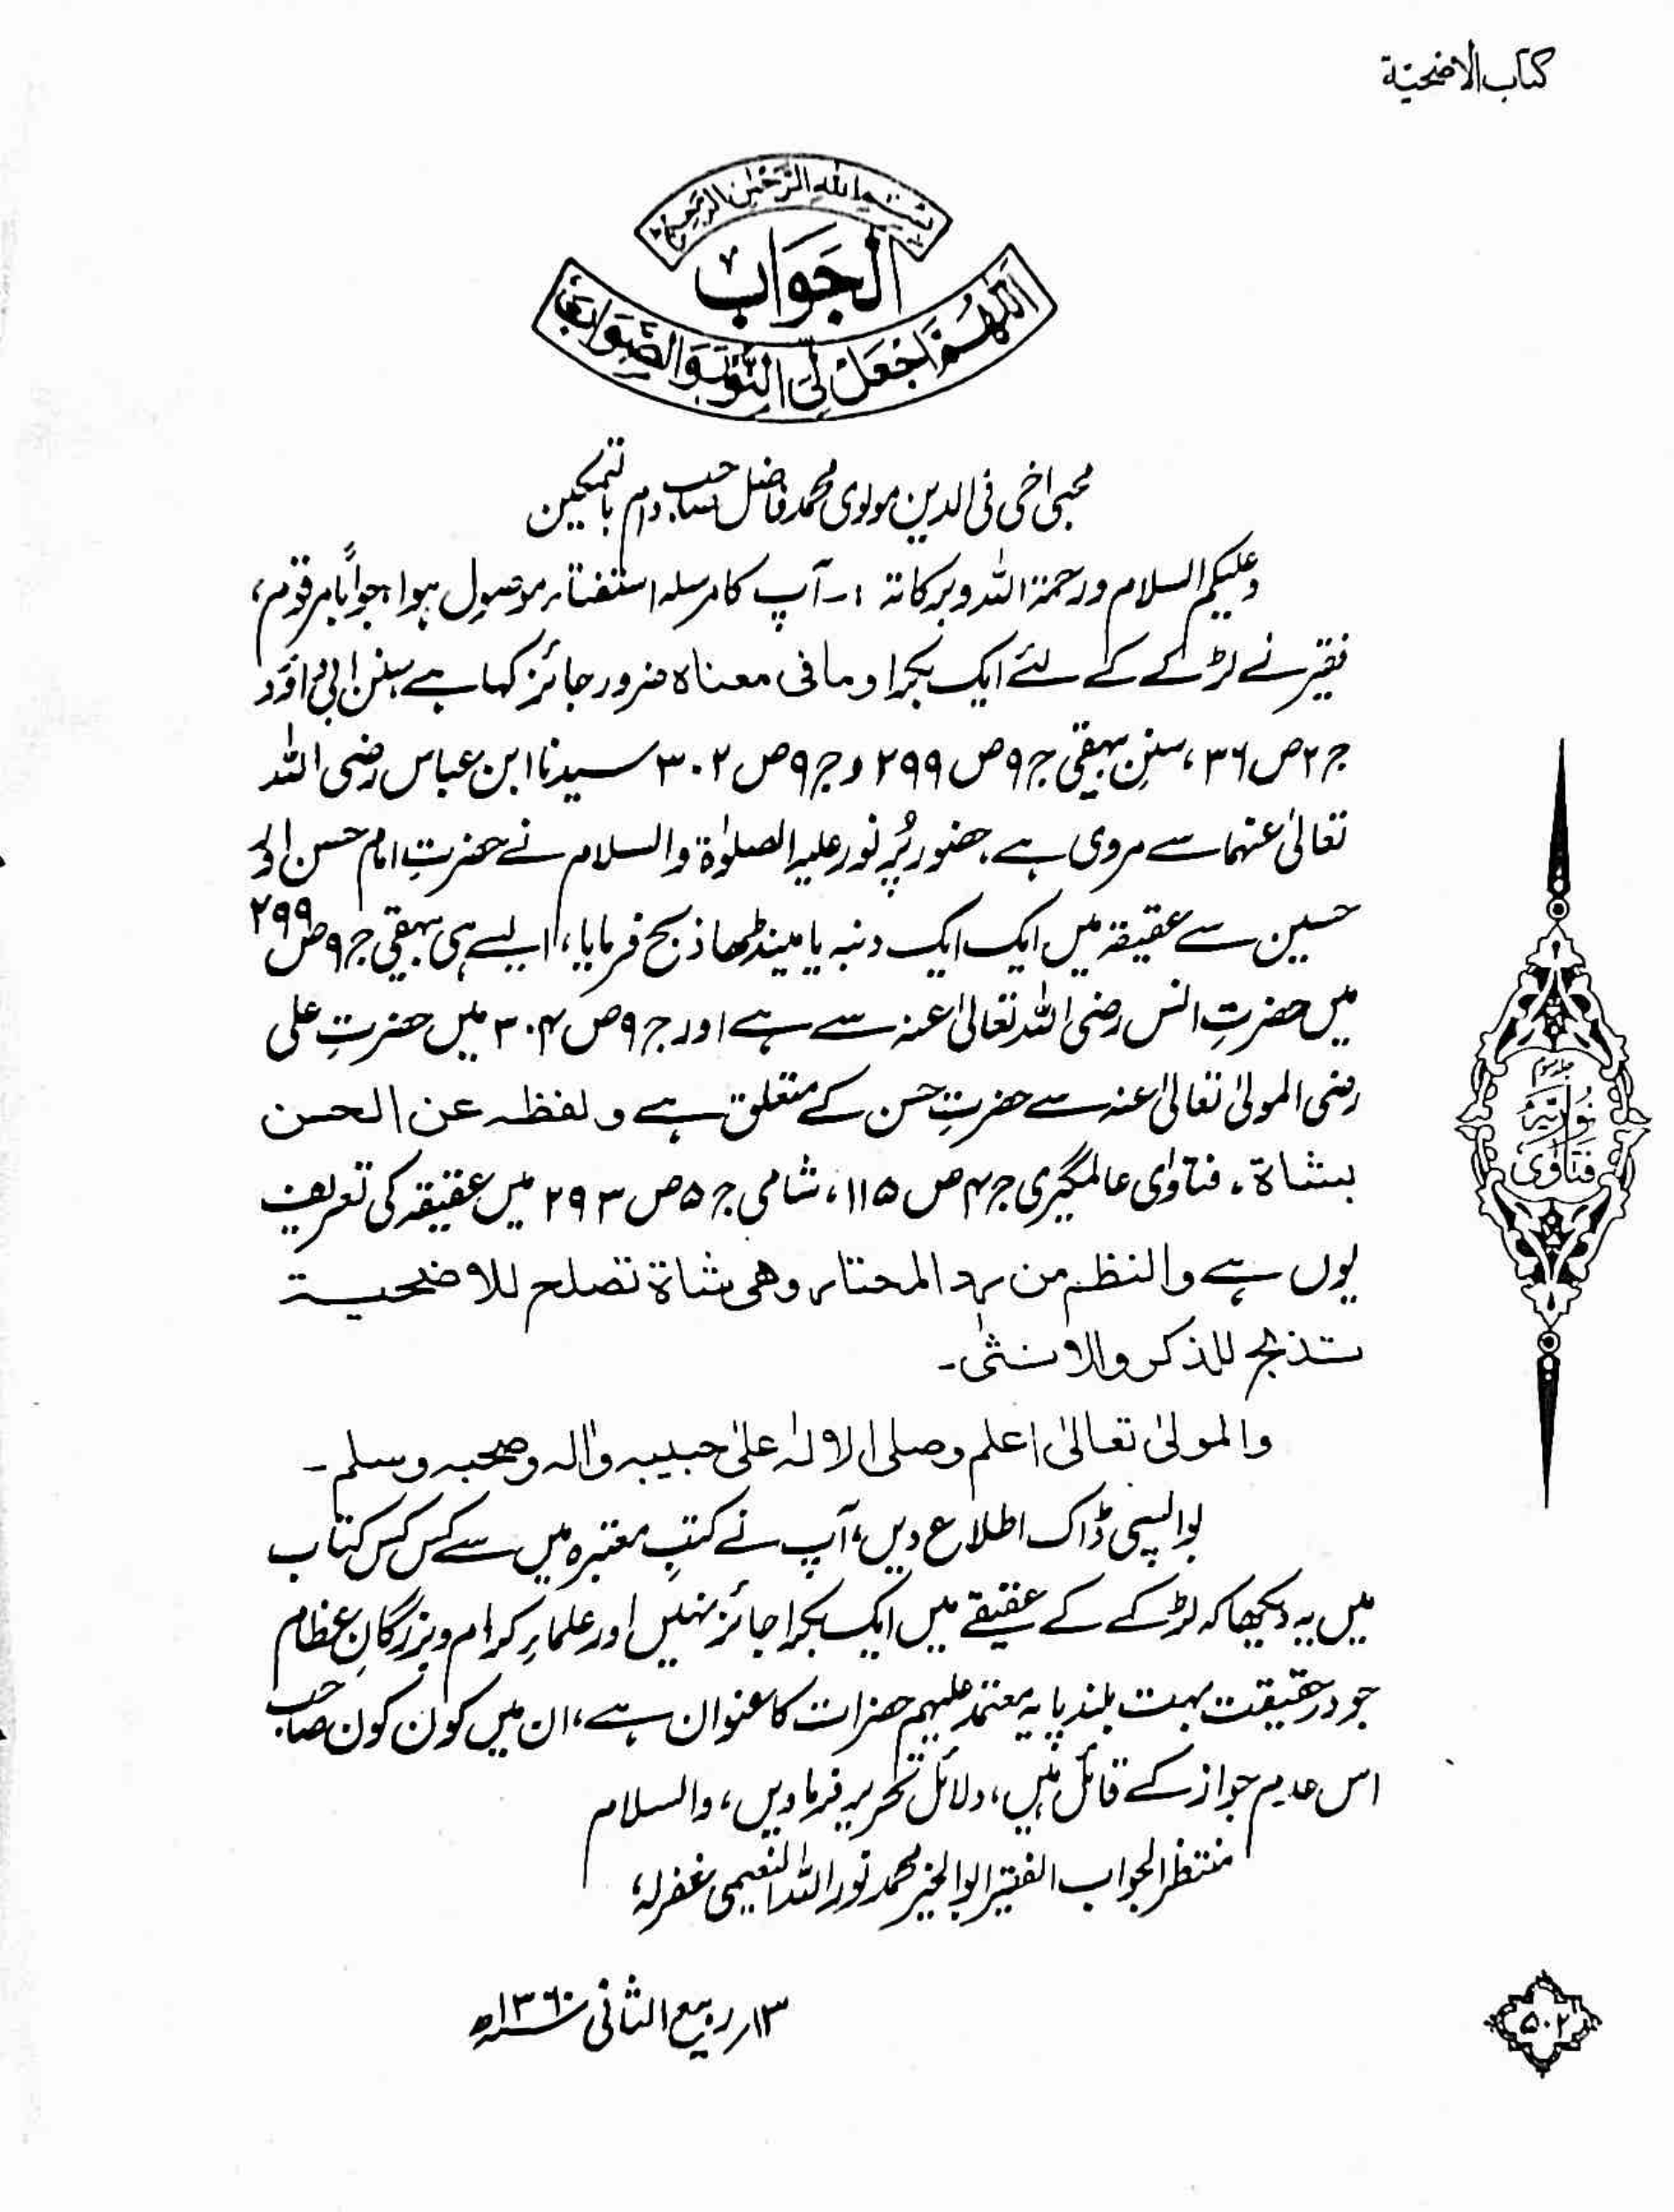 کتاب الاضحیّۃ
بِسْمِ اللہِ الرَّحْمٰنِ الرَّحِیْمِ
اَلْجَوَابُ
اَللّٰهُمَّ اجْعَلْ لِّیَ النُّوْرَ وَالصَّوَابَ
محبی اخی فی الدین مولوی محمد فاضل صاحب دام بالتمکین
وعلیکم السلام ورحمۃ اللہ وبرکاتہ :۔ آپ کا مرسلہ استفتاء موصول ہوا، جواباً مرقوم،
فقیر نے لڑکے کے لئے ایک بکرا وما فی معناہ ضرور جائز کہا ہے، سنن ابی داؤد
ج ۲ ص ۳۶، سنن بیہقی ج ۹ ص ۲۹۹ و ج ۹ ص ۳۰۲ سیدنا ابن عباس رضی اللہ
تعالیٰ عنہما سے مروی ہے، حضور پُر نور علیہ الصلوٰۃ والسلام نے حضرتِ امام حسن اور
حسین سے عقیقہ میں ایک ایک دنبہ یا مینڈھا ذبح فرمایا، ایسے ہی بیہقی ج ۹ ص ۲۹۹
میں حضرتِ انس رضی اللہ تعالیٰ عنہ سے ہے اور ج ۹ ص ۳۰۴ میں حضرتِ علی
رضی المولیٰ تعالیٰ عنہ سے حضرتِ حسن کے متعلق ہے ولفظہ عن الحسن
بشاۃ۔ فتاوٰی عالمگیری ج ۴ ص ۱۱۵، شامی ج ۵ ص ۲۹۳ میں عقیقہ کی تعریف
یوں ہے والنظم من رد المحتار وهی شاۃ تصلح للاضحیۃ
تذبح للذکر والانثٰی۔
والمولیٰ تعالیٰ اعلم وصلی الالٰہ علیٰ حبیبہ واٰلہ وصحبہ وسلم۔
بواپسی ڈاک اطلاع دیں، آپ نے کتبِ معتبرہ میں سے کس کس کتاب
میں یہ دیکھا کہ لڑکے کے عقیقے میں ایک بکرا جائز نہیں اور علماءِ کرام و بزرگانِ عظام
جو درحقیقت بہت بلند پایہ معتمد علیہم حضرات کا عنوان ہے، ان میں کون کون صاحب
اس عدمِ جواز کے قائل ہیں، دلائل تحریر فرماویں، والسلام
منتظر الجواب الفقیر ابو الخیر محمد نور اللہ النعیمی غفرلہٗ
۱۳؍ ربیع الثانی ۱۳۶۰ھ
فتاوٰی نوریہ
۵۰۲